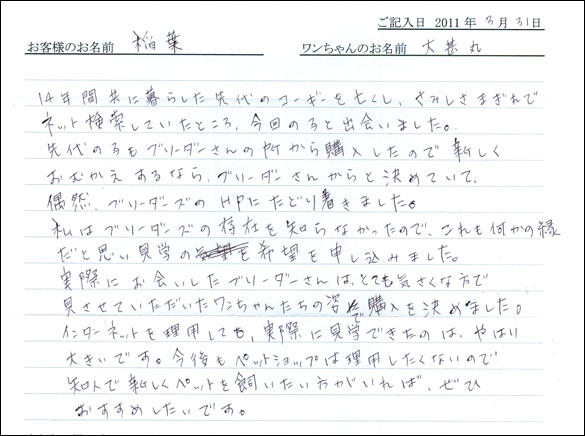 ご記入日 2011年 3月 31日
お客様のお名前 稲葉 ワンちゃんのお名前 大甚丸
14年間共に暮らした先代のコーギーを亡くし、さみしさまぎれで
ネット検索していたところ、今回の子と出会いました。
先代の子もブリーダーさんの所から購入したので新しく
おむかえするなら、ブリーダーさんからと決めていて、
偶然、ブリーダーズのHPにたどり着きました。
私はブリーダーズの存在を知らなかったので、これも何かの縁
だと思い見学の を希望を申し込みました。
実際にお会いしたブリーダーさんは、とても気さくな方で
見させていただいたワンちゃんたちの姿で購入を決めました。
インターネットを理用しても、実際に見学できたのは、やはり
大きいです。今後もペットショップは理用したくないので
知人で新しくペットを飼いたい方がいれば、ぜひ
おすすめしたいです。